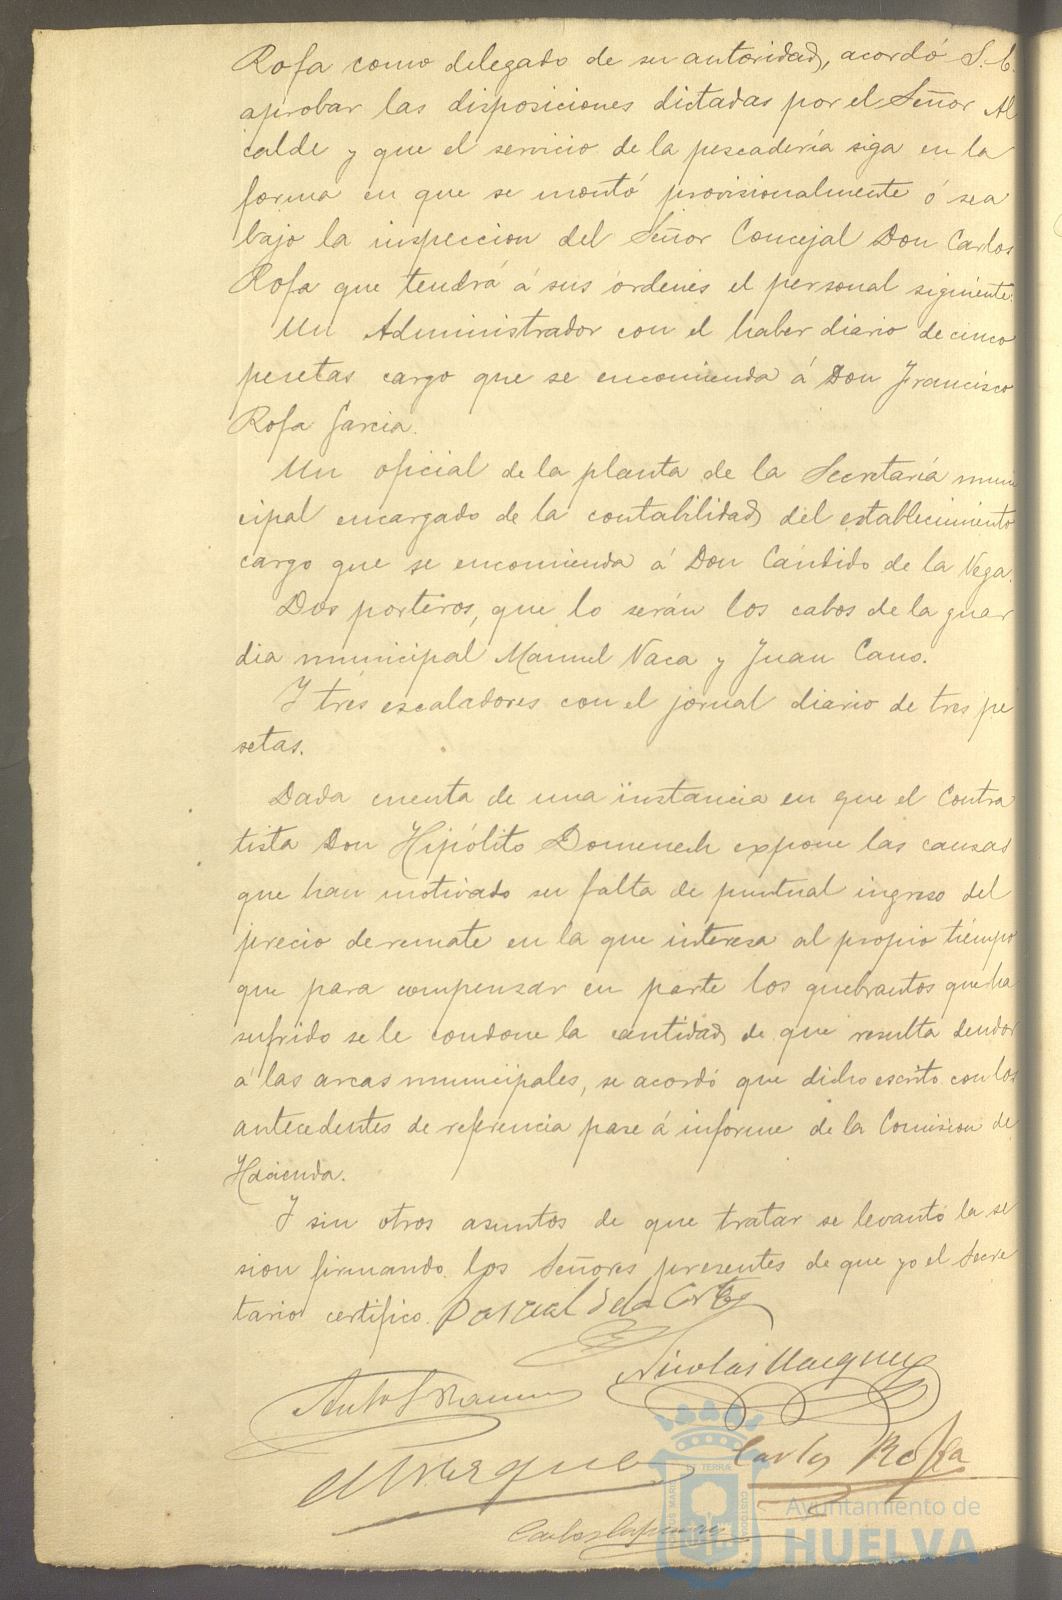 Rofa como delegado de su autoridad, acordó S. E.
aprobar las disposiciones dictadas por el Señor Al
calde y que el servicio de la pescadería siga en la
forma en que se montó provisionalmente ó sea
bajo la inspeccion del Señor Concejal Don Carlos
Rofa que tendrá á sus órdenes el personal siguiente.
Un Administrador con el haber diario de cinco
pesetas cargo que se encomienda á Don Francisco
Rofa Garcia.
Un oficial de la planta de la Secretaría muni
cipal encargado de la contabilidad del establecimiento
cargo que se encomienda á Don Cándido de la Vega.
Dos porteros, que lo serán los cabos de la guar
dia municipal Manuel Vaca y Juan Cano.
Y tres escaladores con el jornal diario de tres pe
setas.
Dada cuenta de una instancia en que el Contra
tista Don Hipólito Domenech expone las causas
que han motivado su falta de puntual ingreso del
precio de remate en la que interesa al propio tiempo
que para compensar en parte los quebrantos que ha
sufrido se le condone la cantidad de que resulta deudor
á las arcas municipales, se acordó que dicho escrito con los
antecedentes de referencia pase á informe de la Comision de
Hacienda.
Y sin otros asuntos de que tratar se levantó la se
sion firmando los Señores presentes de que yo el Secre
tario certifico.
Nicolás Vazquez
Carlos Rofa
Ayuntamiento de
HUELVA